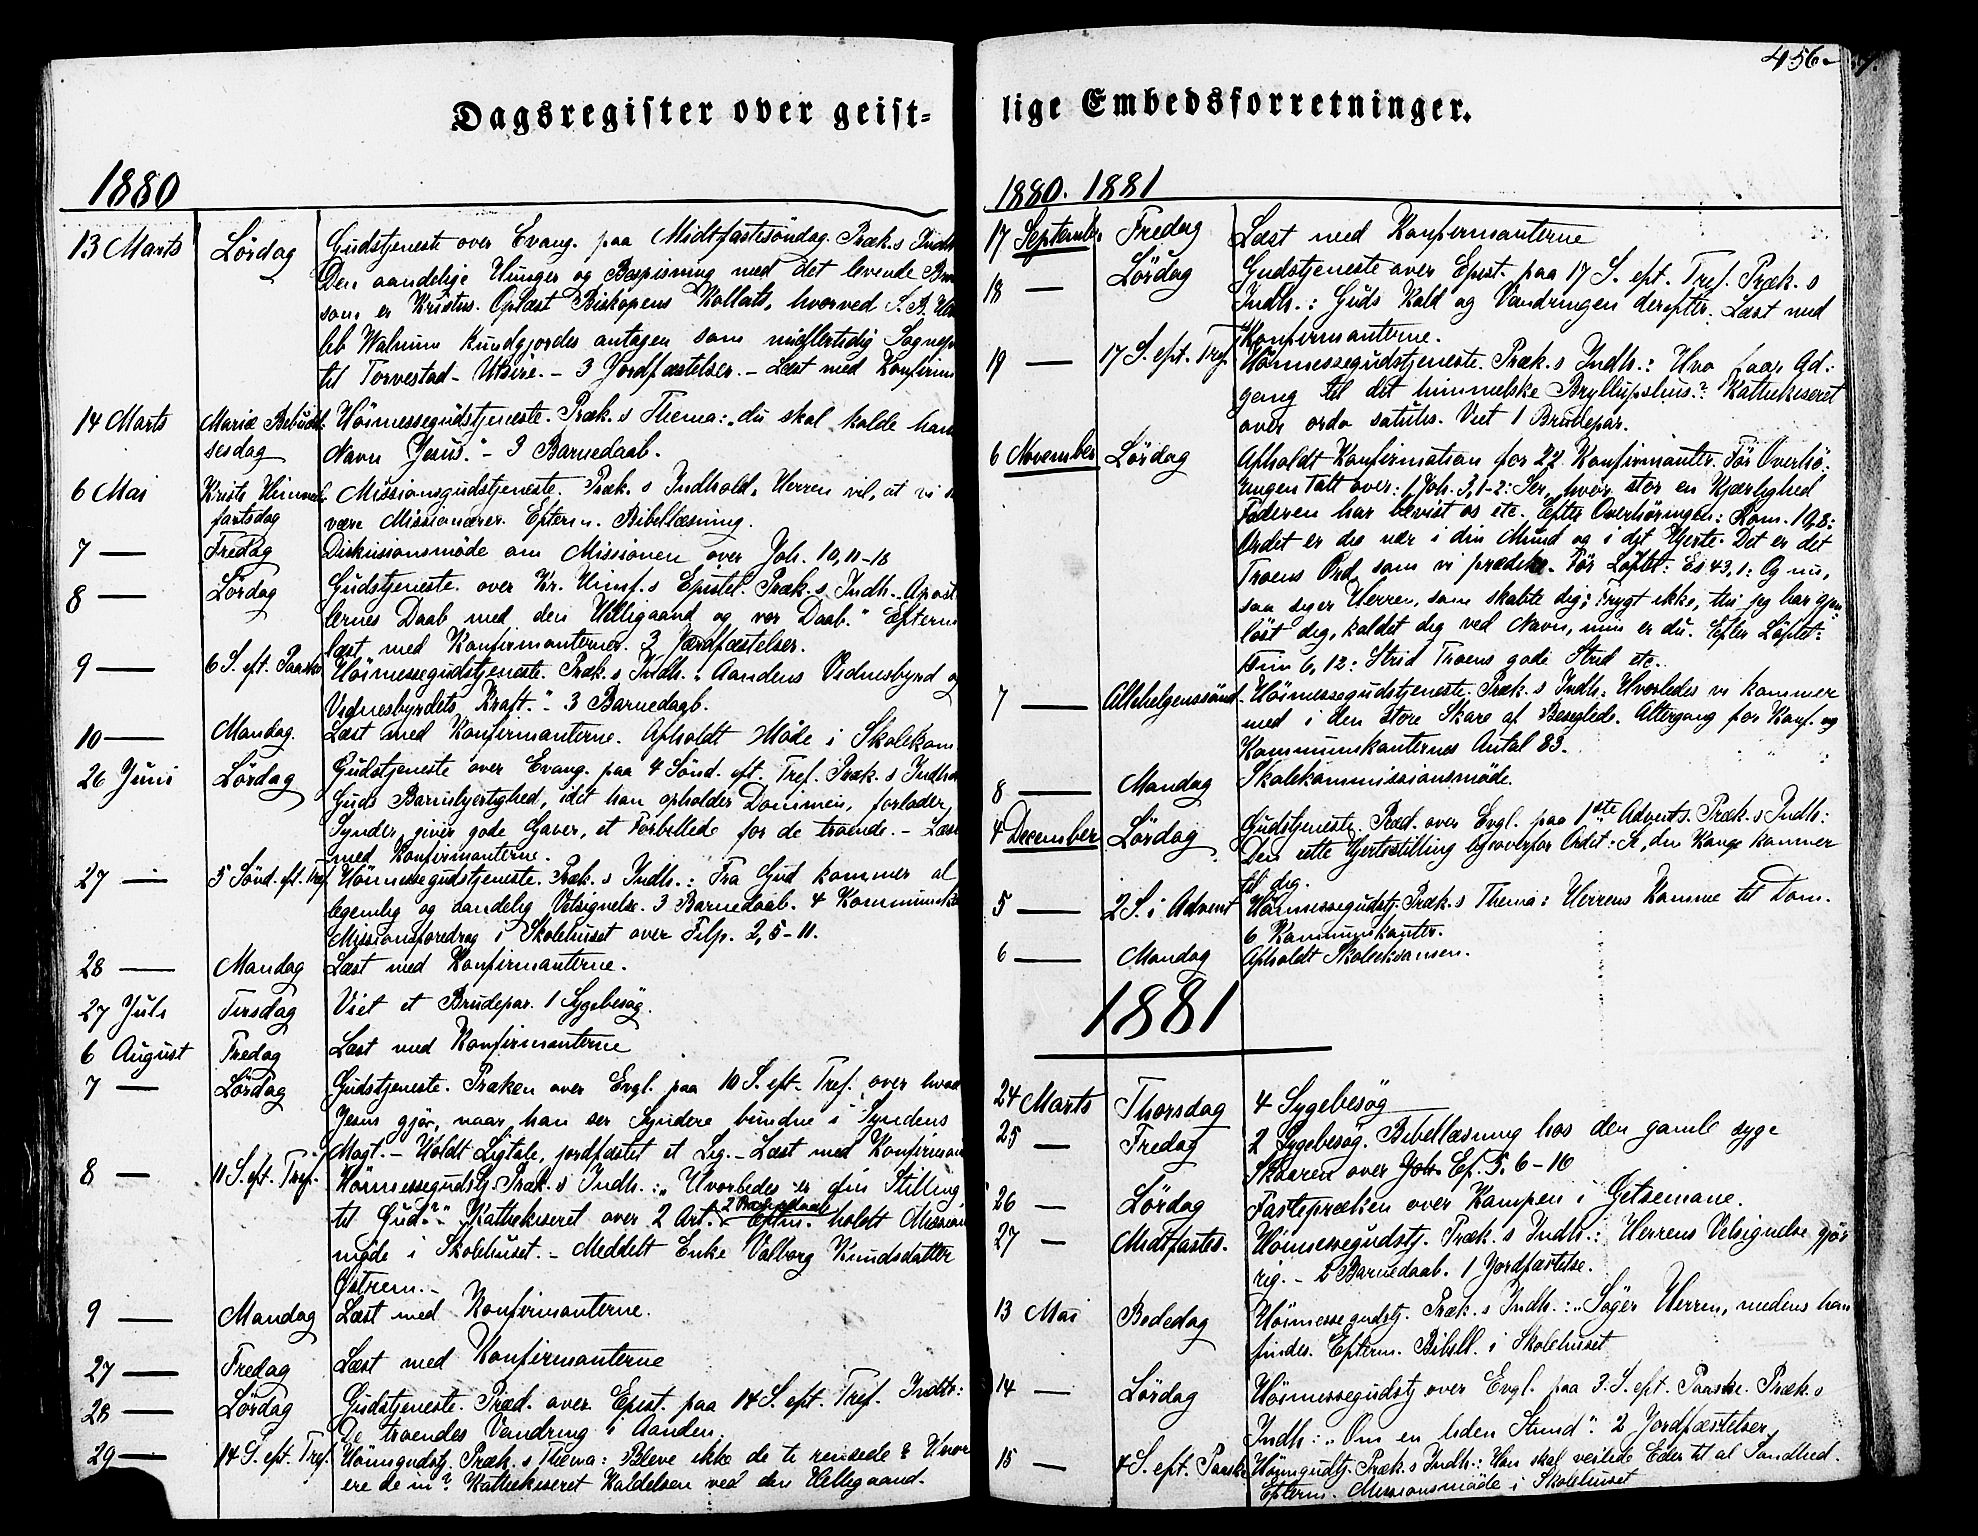 456
Dagsregister over geist=
lige Embedsforretninger.
1880
13 Marts Lørdag Gudstjeneste over Evang. paa Midtfastesøndag. Præk.s Indh
Den aandelige Hunger og Bespisning med det levende
som er Kristus. Oplæst Biskopens Kollats, hvorved S. B.
Walnum kundgjordes antagen som midlertidig Sognepr
til Torvestad - Utsire. - 3 Jordfæstelser. - Læst med Konfirm
14 Marts Mariæ Bebudel Høimessegudstjeneste. Præk.s Thema: „du skal kalde hans
sesdag Navn Jesus". - 3 Barnedaab.
6 Mai Kristi Himmel Missionsgudstjeneste. Præk.s Indhold. Herren vil, at vi
fartsdag være Missionærer. Efterm. Bibellæsning.
7 — Fredag Diskusionsmøde om Missionen over Joh. 10, 11-18
8 — Lørdag Gudstjeneste over Kr. Himf.s Epistel. Præk.s Indh. „Apost
lernes Daab med den Helligaand og vor Daab." Efterm
læst med Konfirmanterne. 3 Jordfæstelser.
9 — 6 S. eft. Paaske Høimessegudstjeneste. Præk.s Indh. „Aandens Vidnesbyrd og
Vidnesbyrdets Kraft." - 3 Barnedaab.
10 — Mandag. Læst med Konfirmanterne. Afholdt Møde i Skolekom
26 Juni Lørdag Gudstjeneste over Evang. paa 4 Sønd. eft. Tref. Præk.s Indh
Guds Barmhjertighed, idet han opholder Dommen, forlader
Synder, giver gode Gaver, et Forbillede for de troende. - Læst
med Konfirmanterne.
27 — 5 Sønd. eft. Tref Høimessegudstjeneste. Præk.s Indh.: Fra Gud kommer al
legemlig og aandelig Velsignelse. 3 Barnedaab. 4 Kommunik
Missionsforedrag i Skolehuset over Filp. 2, 5-11.
28 — Mandag Læst med Konfirmanterne.
27 Juli Tirsdag Viet et Brudepar. 1 Sygebesøg.
6 August Fredag Læst med Konfirmanterne
7 — Lørdag Gudstjeneste. Præken over Evgl. paa 10 S. eft. Tref. over hvad
Jesus gjør, naar han ser Syndere bundne i Syndens
Magt. - Holdt Ligtale, jordfæstet et Lig. - Læst med Konfirman
8 — 11 S. eft. Tref. Høimessegudstj. Præk.s Indh.: „Hvorledes er din Stilling
til Gud?" Kathekiseret over 2 Art. 2 Barnedaab Eftm. holdt Mission
møde i Skolehuset. - Meddelt Enke Valborg Knudsdatter
Østrem. -
9 — Mandag Læst med Konfirmanterne.
27 — Fredag Læst med Konfirmanterne
28 — Lørdag Gudstjeneste. Præd. over Epist. paa 14 S. eft. Tref. Indh:
De troendes Vandring i Aanden.
29 — 14 S. eft. Tref. Høimgudstj. Præk.s Thema: Bleve ikke de ti rensede? Hvor
ere de ni? Kathekiseret Kaldelsen ved den Helligaand.
1880. 1881
17 September Fredag Læst med Konfirmanterne
18 — Lørdag Gudstjeneste over Epist. paa 17 S. eft. Tref. Præk.s
Indh.: Guds Kald og Vandringen derefter. Læst med
Konfirmanterne.
19 — 17 S. eft. Tref. Høimessegudstjeneste. Præk.s Indh.: Hvo faar Ad:
gang til det himmelske Bryllupshus? Kathekiseret
over ordo salutis. Viet 1 Brudepar.
6 November Lørdag Afholdt Konfirmation for 22 Konfirmanter. Før Overhø:
ringen talt over: 1 Joh. 3, 1-2: Ser, hvor stor en Kjærlighed
Faderen har bevist os etc. Efter Overhøringen: Rom. 10, 8:
Ordet er dig nær i din Mund og i dit Hjerte. Det er det
Troens Ord, som vi prædike. Før Løftet: Es 43, 1: Og nu,
saa siger Herren, som skabte dig; Frygt ikke, thi jeg har gjen
løst dig, kaldet dig ved Navn, min er du. Efter Løftet:
1 Tim 6, 12: Strid Troens gode Strid etc.
7 — Allehelgenssønd. Høimessegudstjeneste. Præk.s Indh: Hvorledes vi kommer
med i den store Skare af Beseglede. Altergang for Konf. og
Kommunikanternes Antal 83.
8 — Mandag Skolekommissionsmøde.
4 December Lørdag Gudstjeneste. Præd. over Evgl. paa 1ste Advents. Præk.s Indh:
Den rette Hjertestilling ligeoverfor Ordet: Se, din Konge kommer
til dig.
5 — 2 S. i Advent Høimessegudstj. Præk.s Thema: Herrens Komme til Dom.
6 Kommunikanter.
6 — Mandag Afholdt Skoleeksamen.
1881
24 Marts Thorsdag 4 Sygebesøg
25 — Fredag 2 Sygebesøg. Bibellæsning hos den gamle syge
Skaaren over Joh. Ef. 5. 6-16
26 — Lørdag Fastepræken over Kampen i Getsemane.
27 — Midtfastes. Høimessegudstj. Præk.s Indh.: Herrens Velsignelse gjør
rig. - 2 Barnedaab. 1 Jordfæstelse.
13 Mai Bededag Høimessegudstj. Præk.s Indh.: „Søger Herren, medens han
findes. Efterm. Bibell. i Skolehuset
14 — Lørdag Høimessegudstj over Evgl. paa 3. S. eft. Paaske. Præk.s
Indh.: „Om en liden Stund". 2 Jordfæstelser.
15 — 4 S. eft. Paaske Høimgudtj. Præk.s Indh.: Han skal veilede Eder til al Sandhed.
Efterm. Missionsmøde i Skolehuset